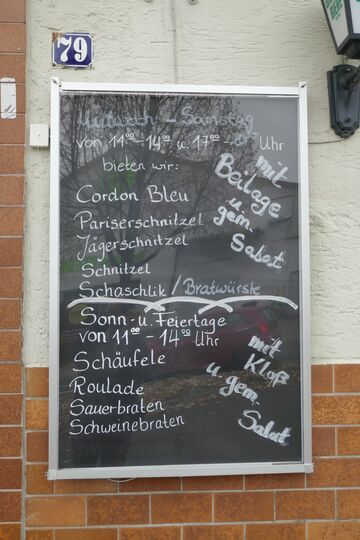 79
Mittwoch - Samstag
von 11⁰⁰ - 14⁰⁰ u. 17⁰⁰ - Uhr
bieten wir:
Cordon Bleu
Pariserschnitzel
Jägerschnitzel
Schnitzel
Schaschlik / Bratwürste
mit
Beilage
u.
gem.
Salat
Sonn- u. Feiertage
von 11⁰⁰ - 14⁰⁰ Uhr
Schäufele
Roulade
Sauerbraten
Schweinebraten
mit
Kloß
u.
gem.
Salat